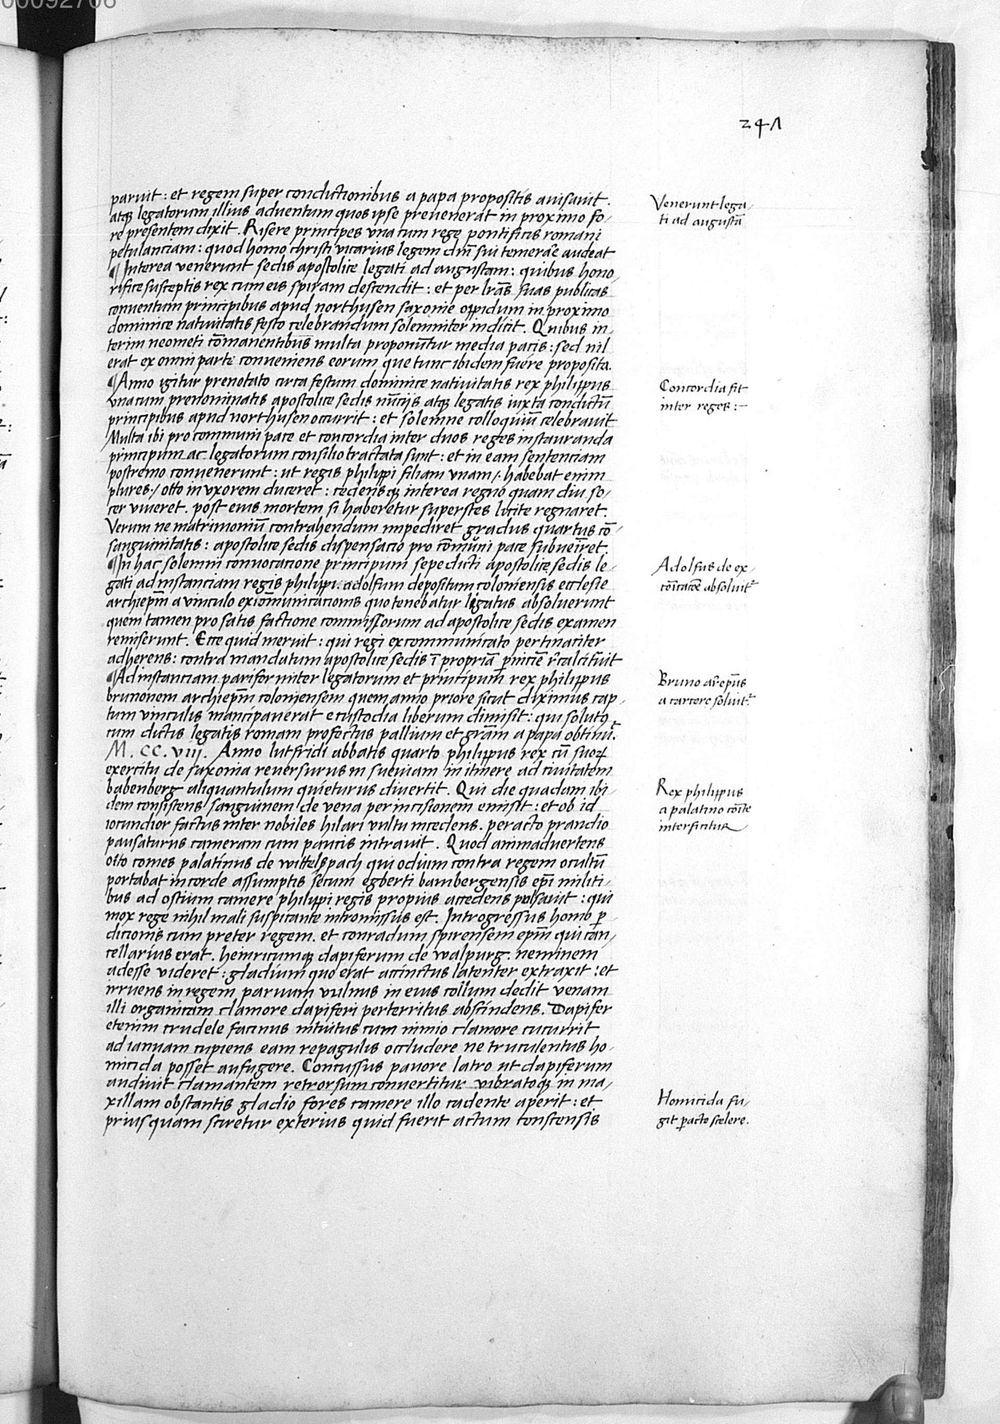 00092706
241
paruit: et regem super condictionibus a papa propositis auisauit.
atqȝ legatorum illius aduentum quos ipse preuenerat in proximo fo-
re presentem dixit. Risere principes vna cum rege pontificis romani
petulanciam: quod homo christi vicarius legem dn̄i sui temerare audeat
¶Interea venerunt sedis apostolice legati ad augustam: quibus hono-
rifice susceptis rex cum eis spiram descendit: et per lr̄as suas publicas
conuentum principibus apud northusen saxonie oppidum in proximo
dominice natiuitatis festo celebrandum solemniter indicit. Quibus in-
terim neometi cōmanentibus multa proponūtur media pacis: sed nil
erat ex omni parte conueniens eorum que tunc ibidem fuere proposita.
¶Anno igitur prenotato circa festum dominice natiuitatis rex philippus
vnacum prenominatis apostolice sedis nūciis atqȝ legatis iuxta condictū
principibus apud northusen occurrit: et solemne colloquiū celebrauit
Multa ibi pro communi pace et concordia inter duos reges instauranda
principum ac legatorum consilio tractata sunt: et in eam sentenciam
postremo conuenerunt: ut regis philippi filiam vnam /. habebat enim
plures ./ otto in vxorem duceret: cedensqȝ interea regno quam diu so-
cer viueret. post eius mortem si haberetur superstes licite regnaret.
Verum ne matrimoniū contrahendum impediret gradus quartus cō-
sanguinitatis: apostolice sedis dispensacio pro cōmuni pace subueniret.
¶In hac solemni conuocatione principum sepedicti apostolice sedis le-
gati ad instanciam regis philippi adolfum depositum coloniensis ecclesie
archiepm̄ a vinculo exiōmunicacionis quo tenebatur ligatus absoluerunt
quem tamen pro satis factione commissorum ad apostolice sedis examen
remiserunt. Ecce quid meruit: qui regi excommunicato pertinaciter
adherens: contra mandatum apostolice sedis ī propriā ꝑniciē rͣcalcitruit
¶Ad instanciam pariformiter legatorum et principum rex philippus
brunonem archiepm̄ coloniensem quem anno priore sicut diximus cap-
tum vinculis mancipauerat e custodia liberum dimisit: qui solutꝰ
cum dictis legatis romam profectus pallium et grām a papa obtinuͭ.
M. CC. viii. Anno lutfridi abbatis quarto philippus rex cū suoꝝ
exercitu de saxonia reuersurus in sueuiam in itinere ad ciuitatem
babenberg aliquantulum quieturus diuertit. Qui die quadam ibi-
dem consistens sanguinem de vena per incisionem emisit: et ob id
iocundior factus inter nobiles hilari vultu incedens. peracto prandio
pausaturus cameram cum paucis intrauit. Quod animaduertens
otto comes palatinus de wittelspach qui odium contra regem ocultū
portabat in corde assumptis secum egberti bambergensis ep̄i militi-
bus ad ostium camere philippi regis propius accedens pulsauit: qui
mox rege nihil mali suspicante intromissus est. Introgressus homo ꝑ-
dicionis cum preter regem. et conradum spirensem epm̄ qui can-
cellarius erat. heinricumqȝ dapiferum de walpurg. neminem
adesse videret: gladium quo erat accinctus latenter extraxit: et
irruens in regem paruum vulnus in eius collum dedit venam
illi organicam clamore dapiferi perterritus abscindens. Dapifer
etenim crudele facinus intuitus cum nimio clamore cucurrit
ad ianuam cupiens eam repagulis occludere ne truculentus ho-
micida posset aufugere. Concussus pauore latro ut dapiferum
audiuit clamantem retrorsum conuertitur vibratoqȝ in ma-
xillam obstantis gladio fores camere illo cadente aperit: et
priusquam sciretur exterius quid fuerit actum conscensis
Venerunt lega-
ti ad augustā
Concordia fit
inter reges:-
Adolfus de ex-
cōicatōe absoluitͬ
Bruno arēpūs
a carcere soluitͬ
Rex philippus
a palatino cōite
interficitur
Homicida fu-
git ꝑacto scelere.